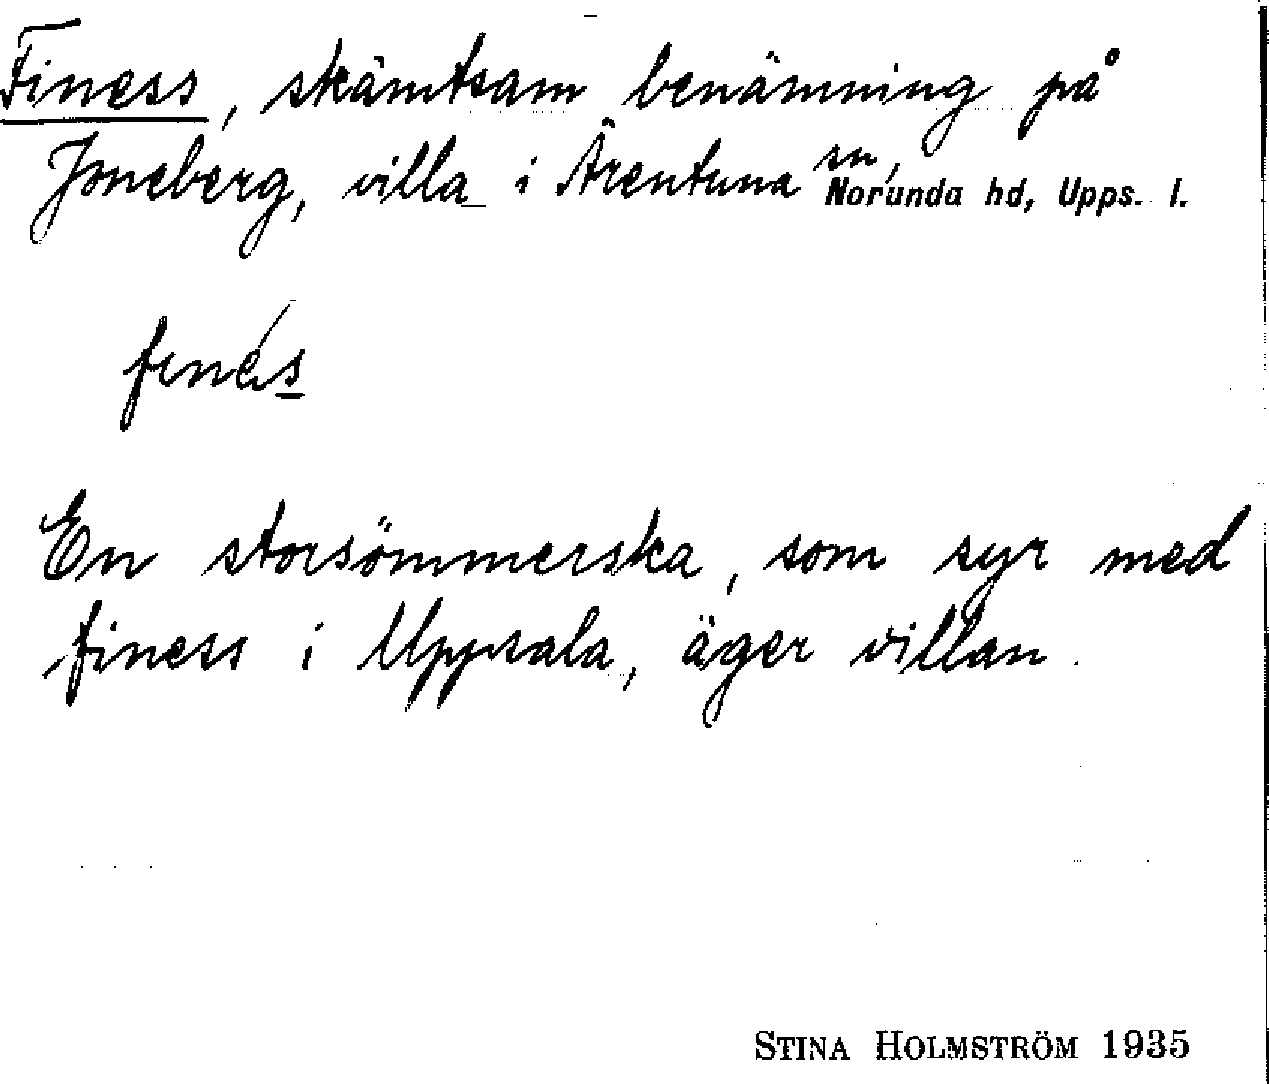 Finess, skämtsam benämning på
Joneberg, villa i Ärentuna sn, Norunda hd, Upps. l.
finés
En storsömmerska, som syr med
finess i Uppsala, äger villan.
STINA HOLMSTRÖM 1935